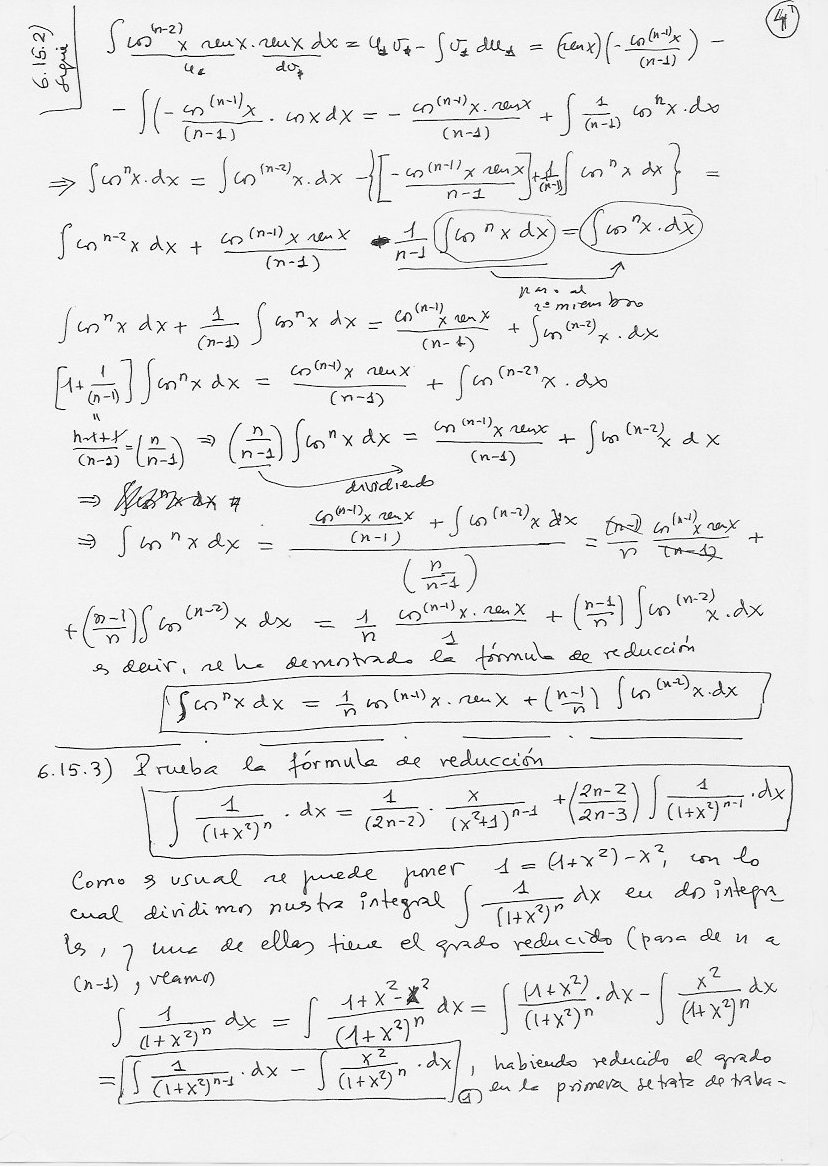 6.15.2) sigue
4
∫ cos^(n-2) x senx . senx dx = u₁v₁ - ∫ v₁ du₁ = (senx)(- cos^(n-1)x / (n-1)) -
u₁ dv₁
- ∫(- cos^(n-1)x / (n-1) . cosx dx = - cos^(n-1)x . senx / (n-1) + ∫ 1/(n-1) cosⁿx . dx
⇒ ∫cosⁿx . dx = ∫cos^(n-2)x . dx - {[- cos^(n-1)x senx / n-1] + 1/(n-1) ∫ cosⁿx dx} =
∫cos^n-2 x dx + cos^(n-1)x senx / (n-1) - 1/n-1 ∫cosⁿx dx = ∫cosⁿx . dx
paso al
2º miembro
∫cosⁿx dx + 1/(n-1) ∫cosⁿx dx = cos^(n-1)x senx / (n-1) + ∫cos^(n-2)x . dx
[1 + 1/(n-1)] ∫cosⁿx dx = cos^(n-1)x senx / (n-1) + ∫cos^(n-2)x . dx
"
n-1+1/(n-1) = (n/n-1) ⇒ (n/n-1) ∫cosⁿx dx = cos^(n-1)x senx / (n-1) + ∫cos^(n-2)x dx
dividiendo
⇒ ∫cosⁿx dx =
⇒ ∫cosⁿx dx = (cos^(n-1)x senx / (n-1) + ∫cos^(n-2)x dx) / (n/n-1) = (n-1)/n cos^(n-1)x senx / (n-1) +
+ (n-1/n) ∫cos^(n-2)x dx = 1/n cos^(n-1)x . senx / 1 + (n-1/n) ∫cos^(n-2)x . dx
es decir, se ha demostrado la fórmula de reducción
∫cosⁿx dx = 1/n cos^(n-1)x . senx + (n-1/n) ∫cos^(n-2)x . dx
6.15.3) Prueba la fórmula de reducción
∫ 1/(1+x²)ⁿ . dx = 1/(2n-2) . x/(x²+1)^n-1 + (2n-2/2n-3) ∫ 1/(1+x²)^n-1 . dx
Como es usual se puede poner 1 = (1+x²) - x², con lo
cual dividimos nuestra integral ∫ 1/(1+x²)ⁿ dx en dos integra
les, y una de ellas tiene el grado reducido (pasa de n a
(n-1), veamos
∫ 1/(1+x²)ⁿ dx = ∫ 1+x²-x²/(1+x²)ⁿ dx = ∫ (1+x²)/(1+x²)ⁿ . dx - ∫ x²/(1+x²)ⁿ dx
= ∫ 1/(1+x²)^n-1 . dx - ∫ x²/(1+x²)ⁿ . dx (1), habiendo reducido el grado
en la primera se trata de traba-